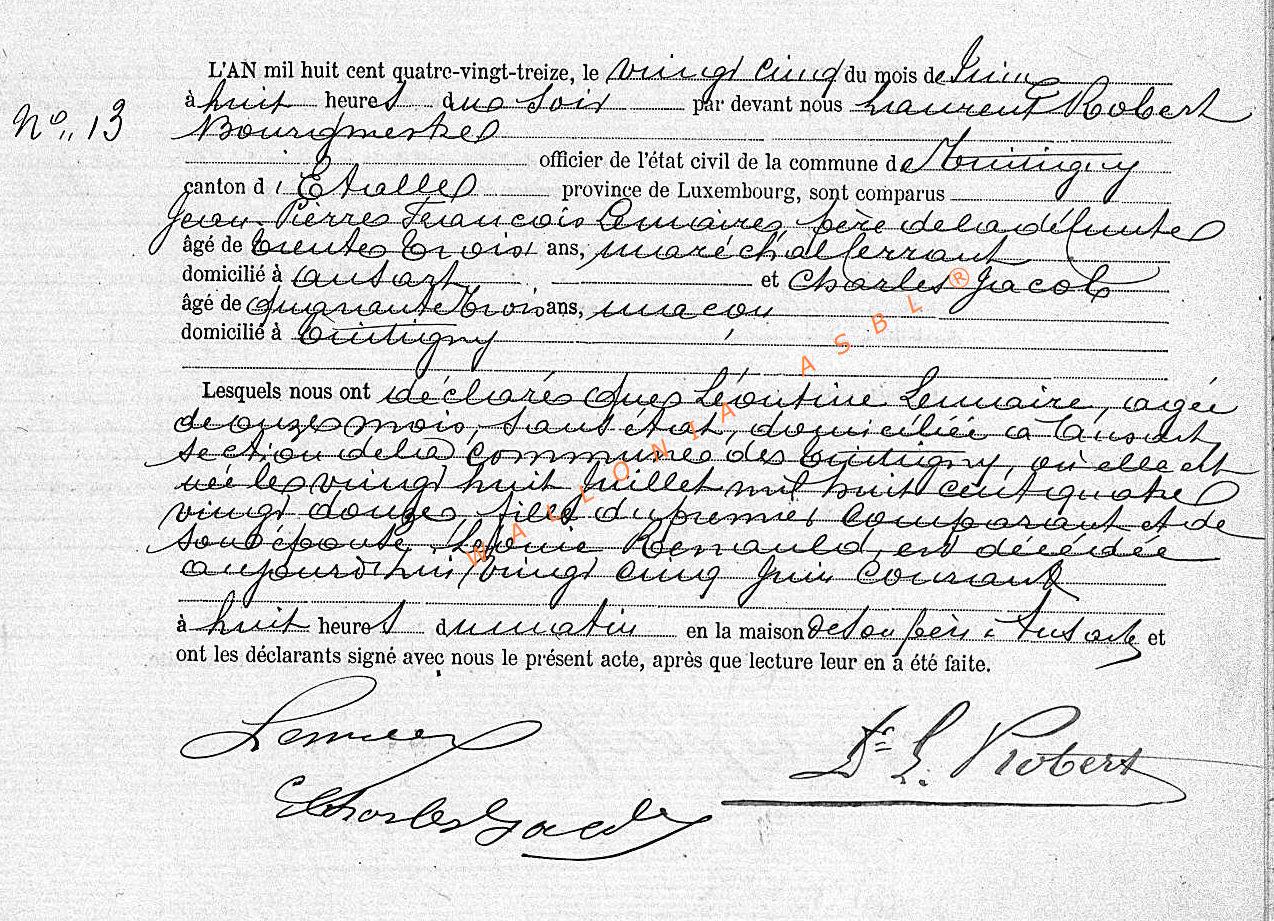 L'AN mil huit cent quatre-vingt-treize, le vingt cinq du mois de Juin
N° 13
à huit heures du soir par devant nous Laurent Robert
Bourgmestre
officier de l'état civil de la commune de Tintigny
canton d'Etalle province de Luxembourg, sont comparus
Jean Pierre François Lemaire, père de la défunte
âgé de trente trois ans, maréchal ferrant
domicilié à Ansart et Charles Jacob
âgé de quarante trois ans, maçon
domicilié à Tintigny
Lesquels nous ont déclaré que Léontine Lemaire, agée
de onze mois, sans état, domiciliée à Ansart
section de la commune de Tintigny, où elle est
née le vingt huit Juillet mil huit cent quatre
vingt douze, fille du premier comparant et de
son épouse, Léonie Renauld, est décédée
aujourd'hui vingt cinq Juin courant
à huit heures du matin en la maison de son père à Ansart et
ont les déclarants signé avec nous le présent acte, après que lecture leur en a été faite.
Lemaire
Dr L. Robert
Charles Jacob
WALLONIA ASBL ®